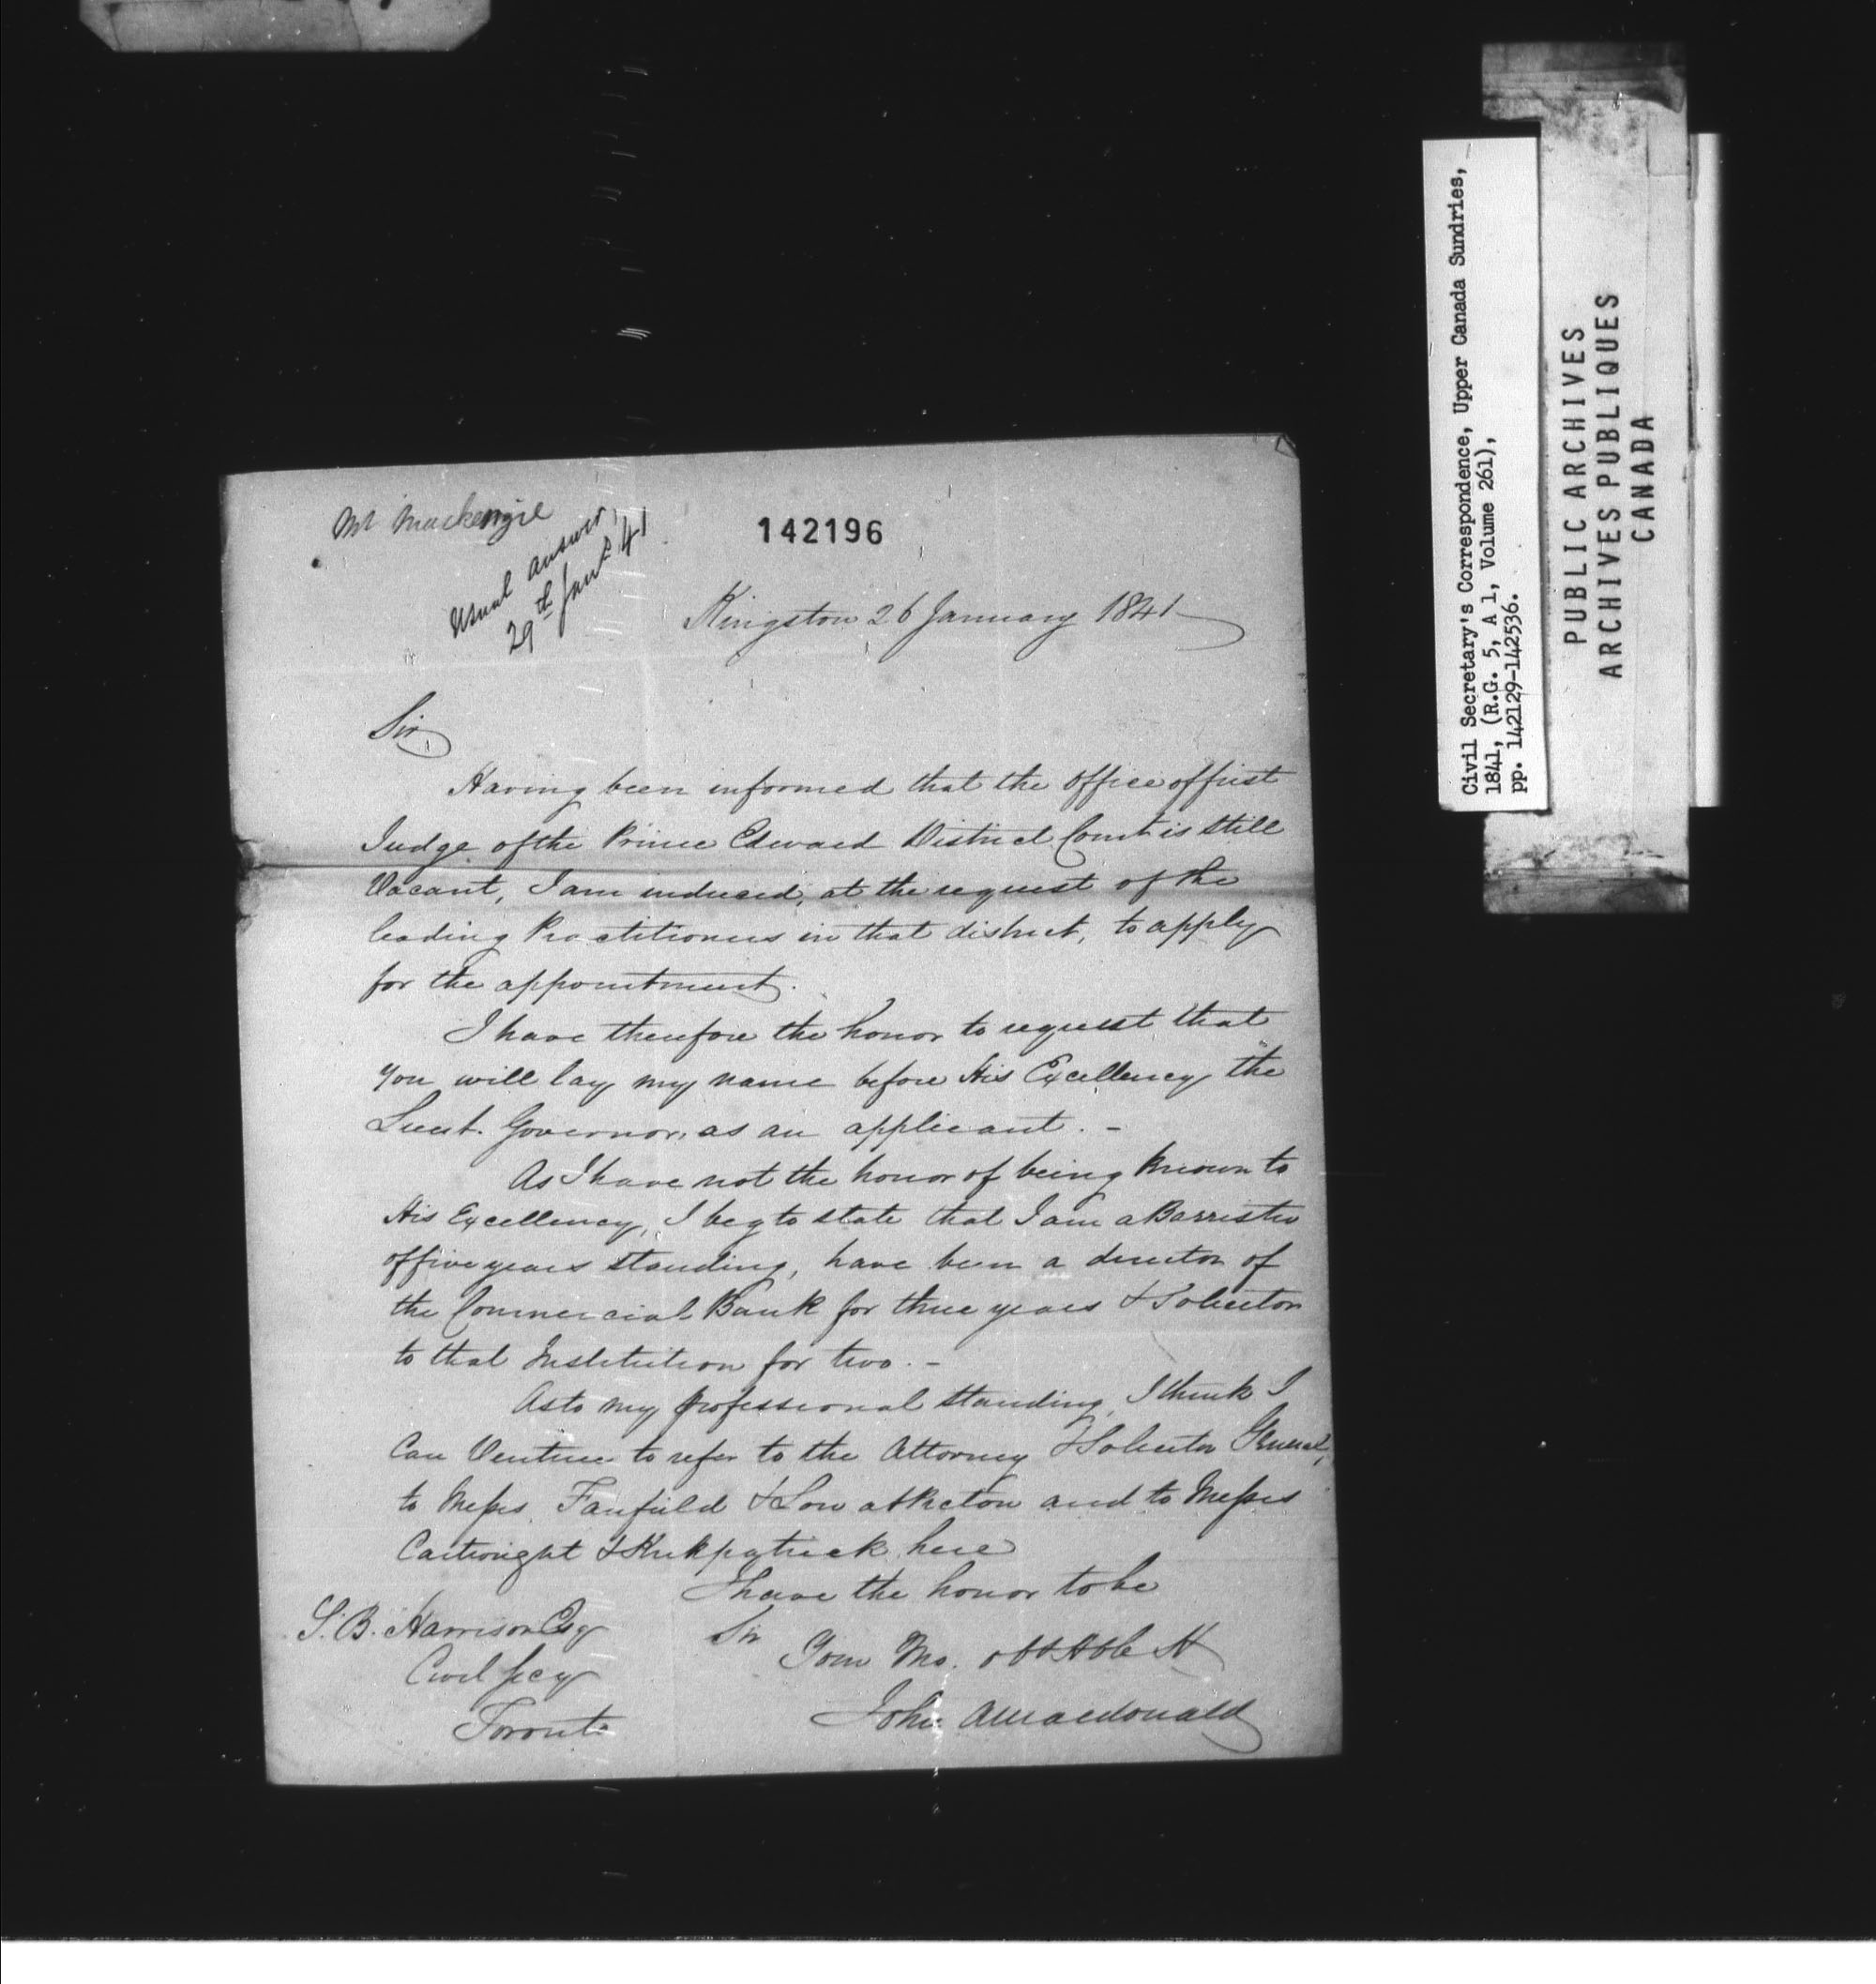 Mr Mackenzie
Usual answer,
29th Jany 41
142196
Kingston 26 January 1841
Sir,
Having been informed that the office of first
Judge of the Prince Edward District Court is still
Vacant, I am induced, at the request of the
leading Practitioners in that district, to apply
for the appointment.
I have therefore the honor to request that
you will lay my name before His Excellency the
Lieut. Governor, as an applicant. -
As I have not the honor of being known to
His Excellency, I beg to state that I am a Barrister
of five years standing, have been a director of
the Commercial Bank for three years & Solicitor
to that Institution for two. -
As to my professional standing, I think I
can Venture to refer to the Attorney & Solicitor General,
to Messrs. Fairfield & Low at Picton and to Messrs
Cartwright & Kirkpatrick here
I have the honor to be
Sir
Your Mo. obt Hble St
John A Macdonald
S. B. Harrison Esq
Civil Secy
Toronto
Civil Secretary's Correspondence, Upper Canada Sundries,
1841, (R.G. 5, A 1, Volume 261),
pp. 142129-142536.
PUBLIC ARCHIVES
ARCHIVES PUBLIQUES
CANADA